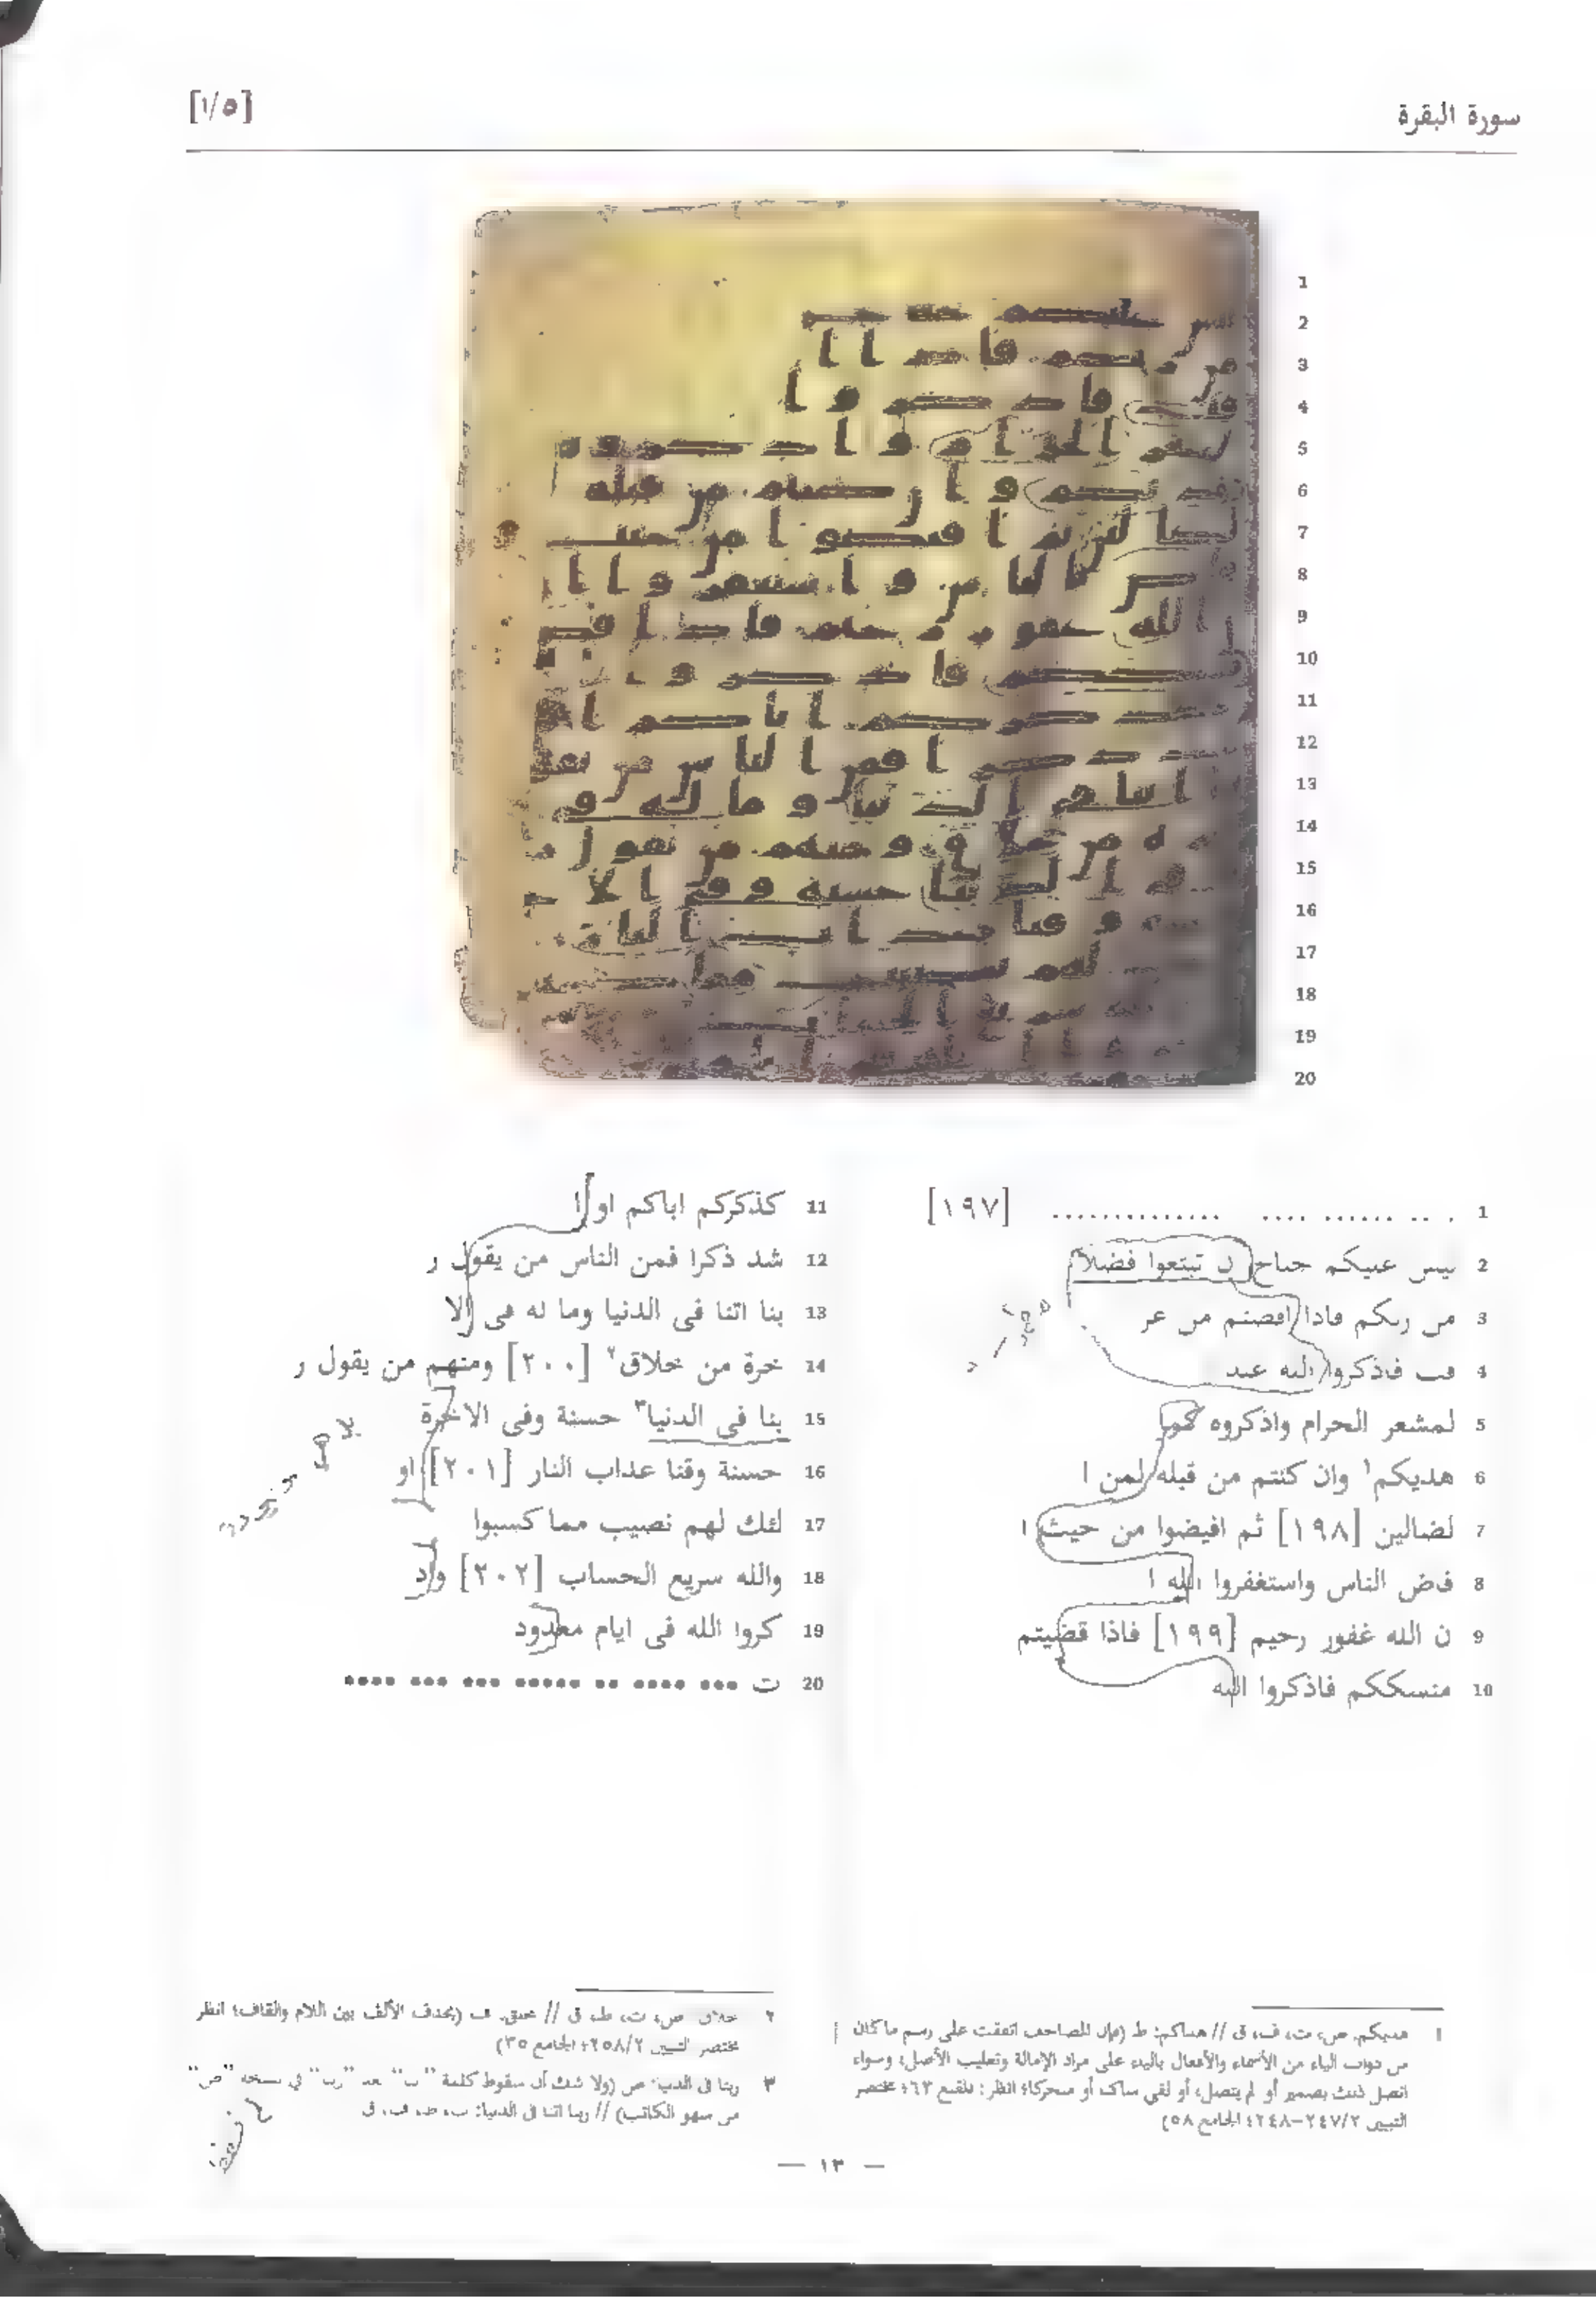 سورة البقرة
[١/٥]
1
2
3
4
5
6
7
8
9
10
11
12
13
14
15
16
17
18
19
20
1 . .. ...... .... .............. [١٩٧]
2 ليس عليكم جناح ان تبتغوا فضلا
3 من ربكم فاذا افضتم من عر
4 فت فاذكروا الله عند ا
5 لمشعر الحرام واذكروه كما
6 هديكم١ وان كنتم من قبله لمن ا
7 لضالين [١٩٨] ثم افيضوا من حيث ا
8 فاض الناس واستغفروا الله ا
9 ن الله غفور رحيم [١٩٩] فاذا قضيتم
10 منسككم فاذكروا الله
11 كذكركم اباكم او ا
12 شد ذكرا فمن الناس من يقول ر
13 بنا اتنا فى الدنيا وما له فى الا
14 خرة من خلاق٢ [٢٠٠] ومنهم من يقول ر
15 بنا فى الدنيا٣ حسنة وفى الاخرة
16 حسنة وقنا عذاب النار [٢٠١] او
17 لئك لهم نصيب مما كسبوا
18 والله سريع الحساب [٢٠٢] واذ
19 كروا الله فى ايام معدود
20 ت ... .... .. ..... ... ... ....
١ هديكم: ص، ت، ف، ق // هداكم: ط (فإن المصاحف اتفقت على رسم ما كان
من ذوات الياء من الأسماء والأفعال بالياء على مراد الإمالة وتغليب الأصل، وسواء
اتصل ذلك بضمير أو لم يتصل، أو لقي ساكنا أو متحركا؛ انظر: المقنع ٦٣؛ مختصر
التبيين ٢/٢٤٧-٢٤٨؛ الجامع ٥٨)
٢ خلاق: ص، ت، ط، ق // خلق: ف (بحذف الألف بين اللام والقاف؛ انظر
مختصر التبيين ٢/٢٥٨؛ الجامع ٣٥)
٣ ربنا فى الدنيا: ص (ولا شك أن سقوط كلمة "اتنا" بعد "ربنا" في نسخة "ص"
من سهو الكاتب) // ربنا اتنا فى الدنيا: ت، ط، ف، ق
— ١٣ —